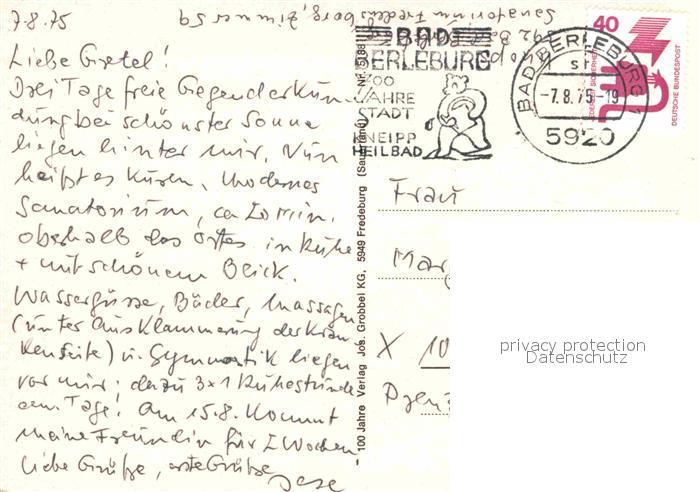 7.8.75
Liebe Gretel!
Drei Tage freie Gegenderkun
dung bei schönster Sonne
liegen hinter mir. Nun
heißt es kuren. Modernes
Sanatorium, ca 20 min.
oberhalb des Ortes in Ruhe
+ mit schönem Blick.
Wassergüsse, Bäder, Massagen
(unter Ausklammerung der Kran-
kenseite) u. Gymnastik liegen
vor mir; dazu 3x1 Ruhestunde
am Tage! Am 15.8. kommt
meine Freundin für 2 Wochen
liebe Grüße, erste Grüße
Sanatorium Fredeburg, Zimmer 59
592 Bad
BAD
BERLEBURG
700
JAHRE
STADT
KNEIPP
HEILBAD
BAD BERLEBURG 1
sr
-7.8.75-19
5920
40
JEDERZEIT SICHERHEIT
DEUTSCHE BUNDESPOST
- 100 Jahre Verlag Jos. Grobbel KG, 5949 Fredeburg (Sauerland) - Nr. 5188
Frau
Mar
X 10
privacy protection
Datenschutz